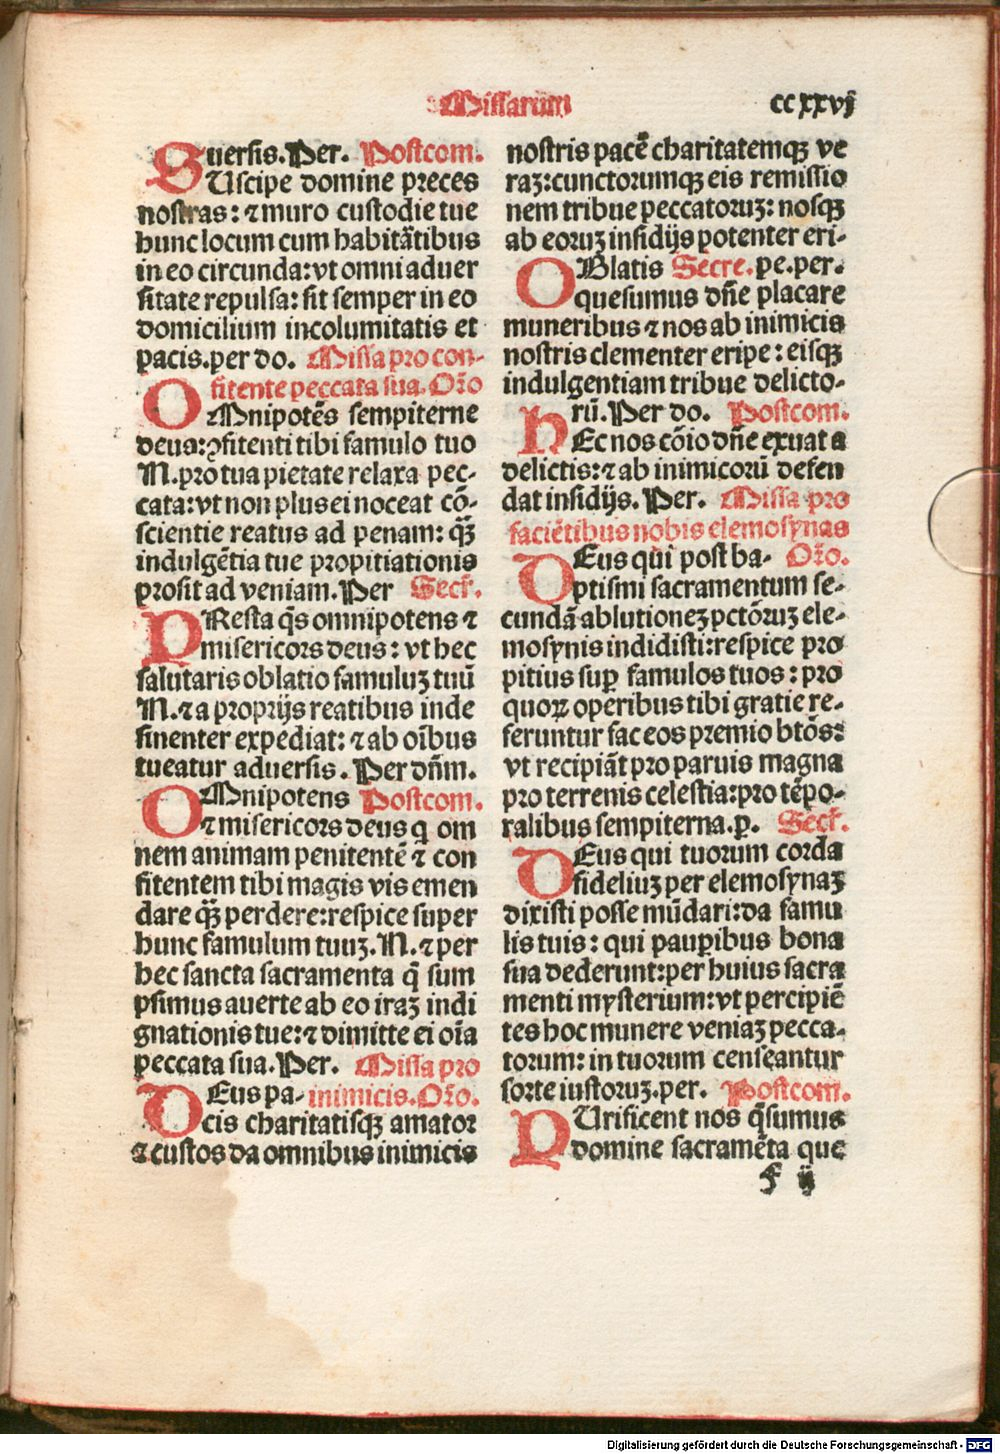 Missarum
ccxxvij
uersis. Per. Postcom.
SUscipe domine preces
nostras: ⁊ muro custodie tue
hunc locum cum habitãtibus
in eo circunda: vt omni aduer
sitate repulsa: sit semper in eo
domicilium incolumitatis et
pacis. per do. Missa pro con-
fitente peccata sua. Orõ
OMnipotẽs sempiterne
deus: ꝯfitenti tibi famulo tuo
N. pro tua pietate relaxa pec-
cata: vt non plus ei noceat cõ-
scientie reatus ad penam: qȝ̃
indulgẽtia tue propitiationis
prosit ad veniam. Per Secř.
PResta q̃s omnipotens ⁊
misericors deus: vt hec
salutaris oblatio famuluȝ tuũ
N. ⁊ a proprijs reatibus inde
sinenter expediat: ⁊ ab oĩbus
tueatur aduersis. Per dñm.
OMnipotens Postcom.
⁊ misericors deus q om
nem animam penitentẽ ⁊ con
fitentem tibi magis vis emen
dare qȝ̃ perdere: respice super
hunc famulum tuuȝ. N. ⁊ per
hec sancta sacramenta q̃ sum
psimus auerte ab eo iraȝ indi
gnationis tue: ⁊ dimitte ei oĩa
peccata sua. Per. Missa pro
DEus pa- inimicis. Orõ.
cis charitatisqȝ amator
⁊ custos da omnibus inimicis
nostris pacẽ charitatemqȝ ve
raȝ: cunctorumqȝ eis remissio
nem tribue peccatoruȝ: nosqȝ
ab eoruȝ insidijs potenter eri-
OBlatis Secre. pe. per.
quesumus dñe placare
muneribus ⁊ nos ab inimicis
nostris clementer eripe: eisqȝ
indulgentiam tribue delicto-
rũ. Per do. Postcom.
HEc nos cõio dñe exuat a
delictis: ⁊ ab inimicorũ defen
dat insidijs. Per. Missa pro
faciẽtibus nobis elemosynas
DEus qui post ba- Orõ.
ptismi sacramentum se-
cundã ablutioneȝ pctõruȝ ele-
mosynis indidisti: respice pro
pitius suꝑ famulos tuos: pro
quoꝝ operibus tibi gratie re-
feruntur fac eos premio btõs:
vt recipiãt pro paruis magna
pro terrenis celestia: pro tẽpo-
ralibus sempiterna. ꝑ. Secř.
DEus qui tuorum corda
fideliuȝ per elemosynaȝ
dixisti posse mũdari: da famu
lis tuis: qui pauꝑibus bona
sua dederunt: per huius sacra
menti mysterium: vt percipiẽ
tes hoc munere veniaȝ pecca-
torum: in tuorum censeantur
sorte iustoruȝ. per. Postcom.
PUrificent nos q̃sumus
domine sacramẽta que
f ij
Digitalisierung gefördert durch die Deutsche Forschungsgemeinschaft - DFG